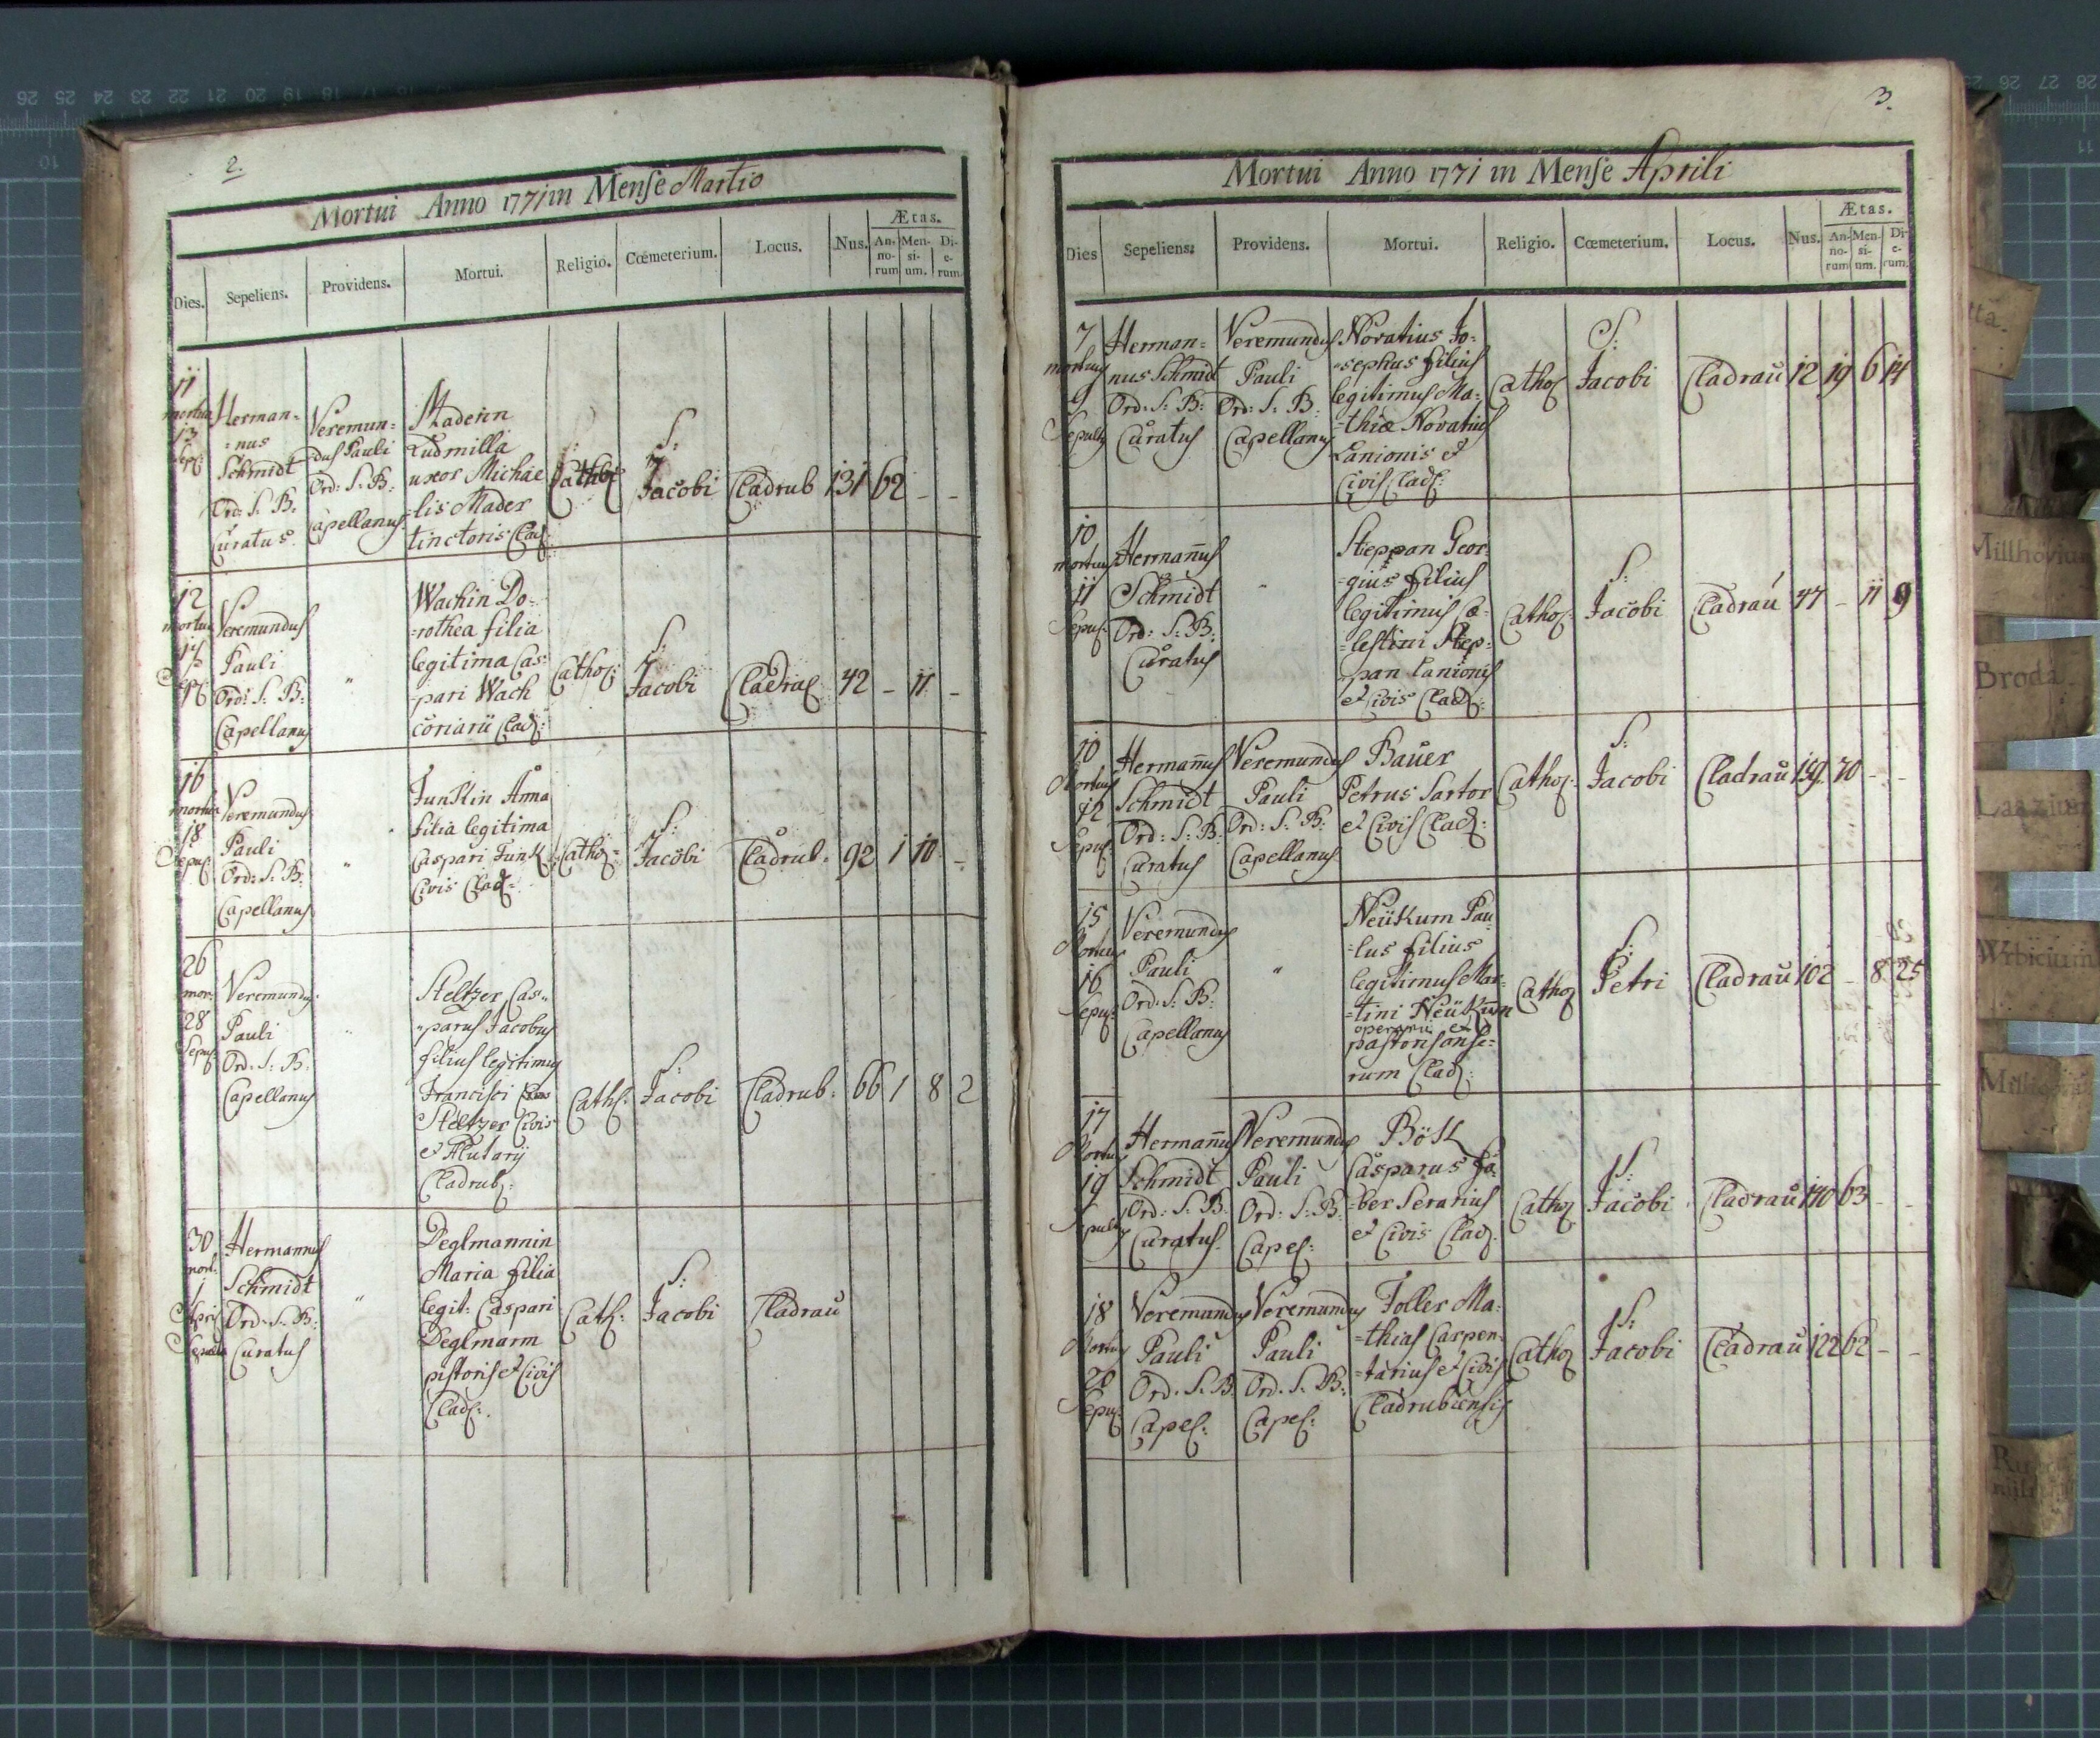 2.
Mortui Anno 1771 in Menſe Martio
Dies. Sepeliens. Providens. Mortui. Religio. Cœmeterium. Locus. Nus. Ætas.
Annorum Mensium. Dierum
11
mortua
13
Sep:
Herman=
=nus
Schmidt
Ord: S: B:
Curatus.
Veremun=
dus Pauli
Ord: S: B:
Capellanus
Maderin
Ludmilla
uxor Michae
=lis Mader
tinctoris Clad:
Cathol:
S:
Jacobi
Cladrub
131
62
-
-
12
mortua
Sep:
Veremundus
Pauli
Ord: S: B:
Capellanus
"
Wachin Do=
=rothea filia
legitima Cas=
pari Wach
coriarii Clad:
Cathol:
S:
Jacobi
42
-
11
-
16
mortua
18
Sepul:
Veremundus
Pauli
Ord: S: B:
Capellanus
"
Funkin Anna
filia legitima
Caspari Funk
Civis Clad=
Cathol:
S:
Jacobi
Cladrub.
92
1
10
-
26
mor:
28
Sepul:
Veremundus
Pauli
Ord: S: B:
Capellanus
"
Steltzer Cas=
=parus Jacobus
filius legitimus
Francisci
Steltzer Civis
et
Cladrub:
Cath:
S:
Jacobi
Cladrub:
66
1
8
2
30
mort.
1
April
Sepulta
Hermannus
Schmidt
Ord: S: B:
Curatus
"
Deglmannin
Maria filia
legit: Caspari
Deglmann
pistoris et Civis
Clad:
Cath:
S:
Jacobi
Cladrau
3.
Mortui Anno 1771 in Menſe Aprili
Dies Sepeliens. Providens. Mortui. Religio. Cœmeterium. Locus. Nus. Ætas.
Annorum Mensium. Dierum.
7
mortuus
9
Sepult
Herman=
nus Schmidt
Ord: S: B:
Curatus
Veremundus
Pauli
Ord: S: B:
Capellanus
Novatius Jo=
=sephus filius
legitimus Ma=
=thiæ Novatius
Lanionis et
Civis Clad:
Cathol
S:
Jacobi
Cladrau
12
19
6
14
10
mortuus
11
Sepul:
Hermanus
Schmidt
Ord: S: B:
Curatus
"
Steppan Geor=
=gius filius
legitimus Cœ=
=lestini Step=
pan Lanionis
et Civis Clad:
Cathol:
S:
Jacobi
Cladrau
47
-
11
9
10
Mortuus
12
Sepul:
Hermanus
Schmidt
Ord: S: B:
Curatus
Veremundus
Pauli
Ord: S: B:
Capellanus
Bauer
Petrus Sartor
et Civis Clad:
Cathol:
S:
Jacobi
Cladrau
159.
70
-
-
15
Mortuus
16
Sepul:
Veremundus
Pauli
Ord: S: B:
Capellanus
"
Neükum Pau
=lus filius
legitimus Mar=
=tini Neükum
operarii et
pastoris anse=
rum Clad:
Cathol
S:
Petri
Cladrau
102
-
8
25
17
Mortuus
19
Sepult
Hermanus
Schmidt
Ord: S: B:
Curatus
Veremundus
Pauli
Ord: S: B:
Capel:
Casparus fa=
=ber Serarius
et Civis Clad:
Cathol
S:
Jacobi
Cladrau
140
63
-
-
18
Mortuus
20
Sepul:
Veremundus
Pauli
Ord: S: B:
Capel:
Veremundus
Pauli
Ord: S: B:
Capel:
Toller Ma=
=thias Carpen=
=tarius et Civis
Cladrubiensis
Cathol
S:
Jacobi
Cladrau
122
62
-
-
Millhövium
Broda
Laazium
Wrbicium